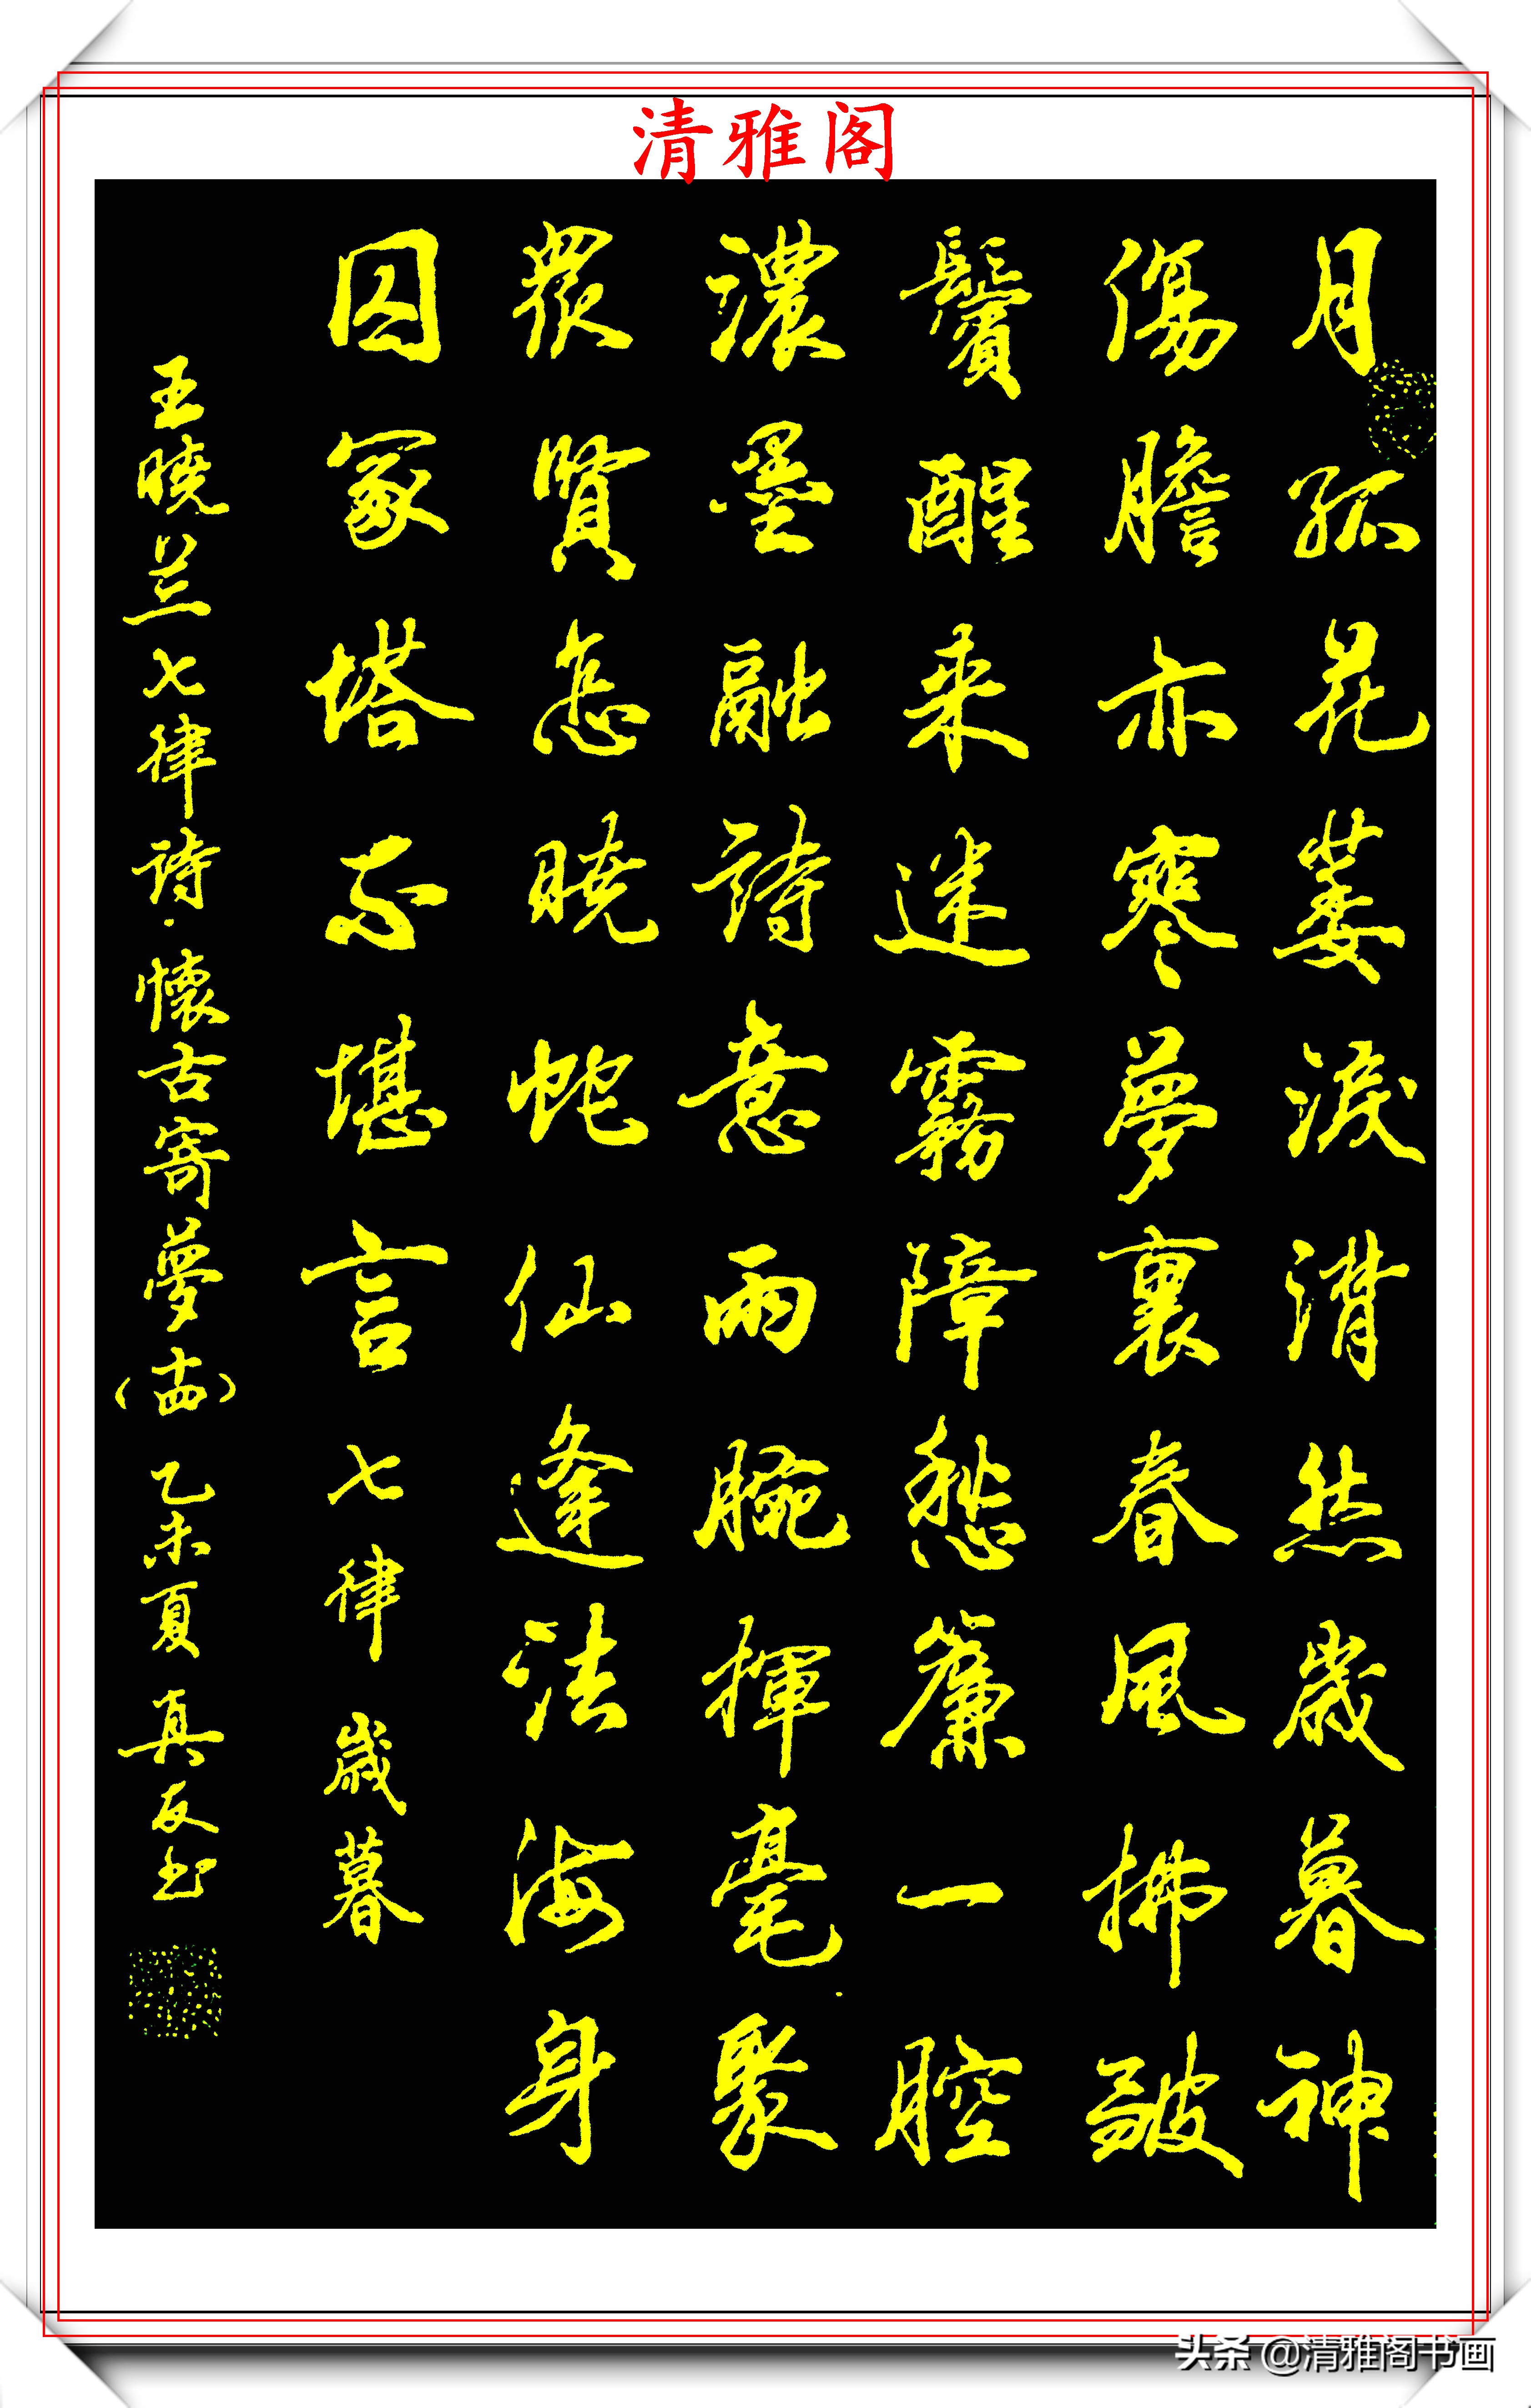 清雅阁
月孤花萎淚潸然歲暮神
傷膽亦寒夢裏春風拂皺
鬢醒来迷霧障愁簾一腔
濃墨融詩意兩腕揮毫聚
眾賢怎曉蛇仙逢法海身
囚冢塔不堪言七律歲暮
王曉兰七律詩·懷古寄夢(十四)乙未夏真友书
头条@清雅阁书画